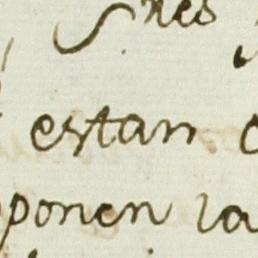 nes
estan
ponen la